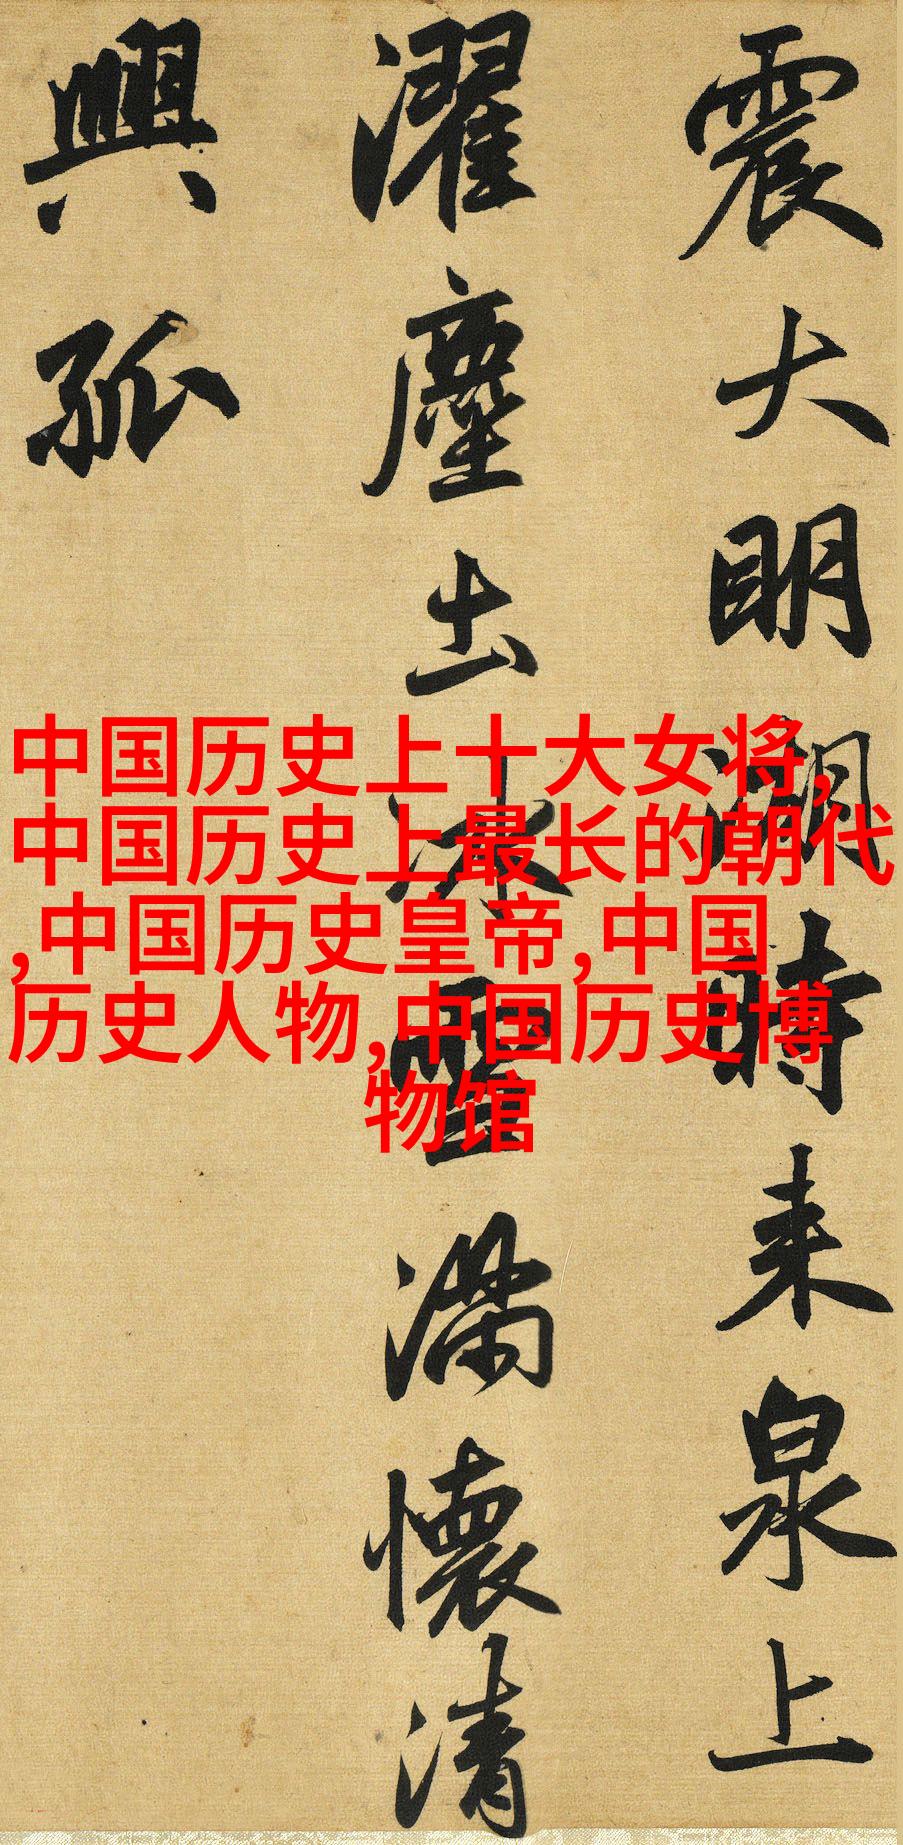 震大明湖時来泉上
濯塵出冰雪滿懷清
興孤
中国历史上十大女将,
中国历史上最长的朝代
,中国历史皇帝,中国
历史人物,中国历史博
物馆